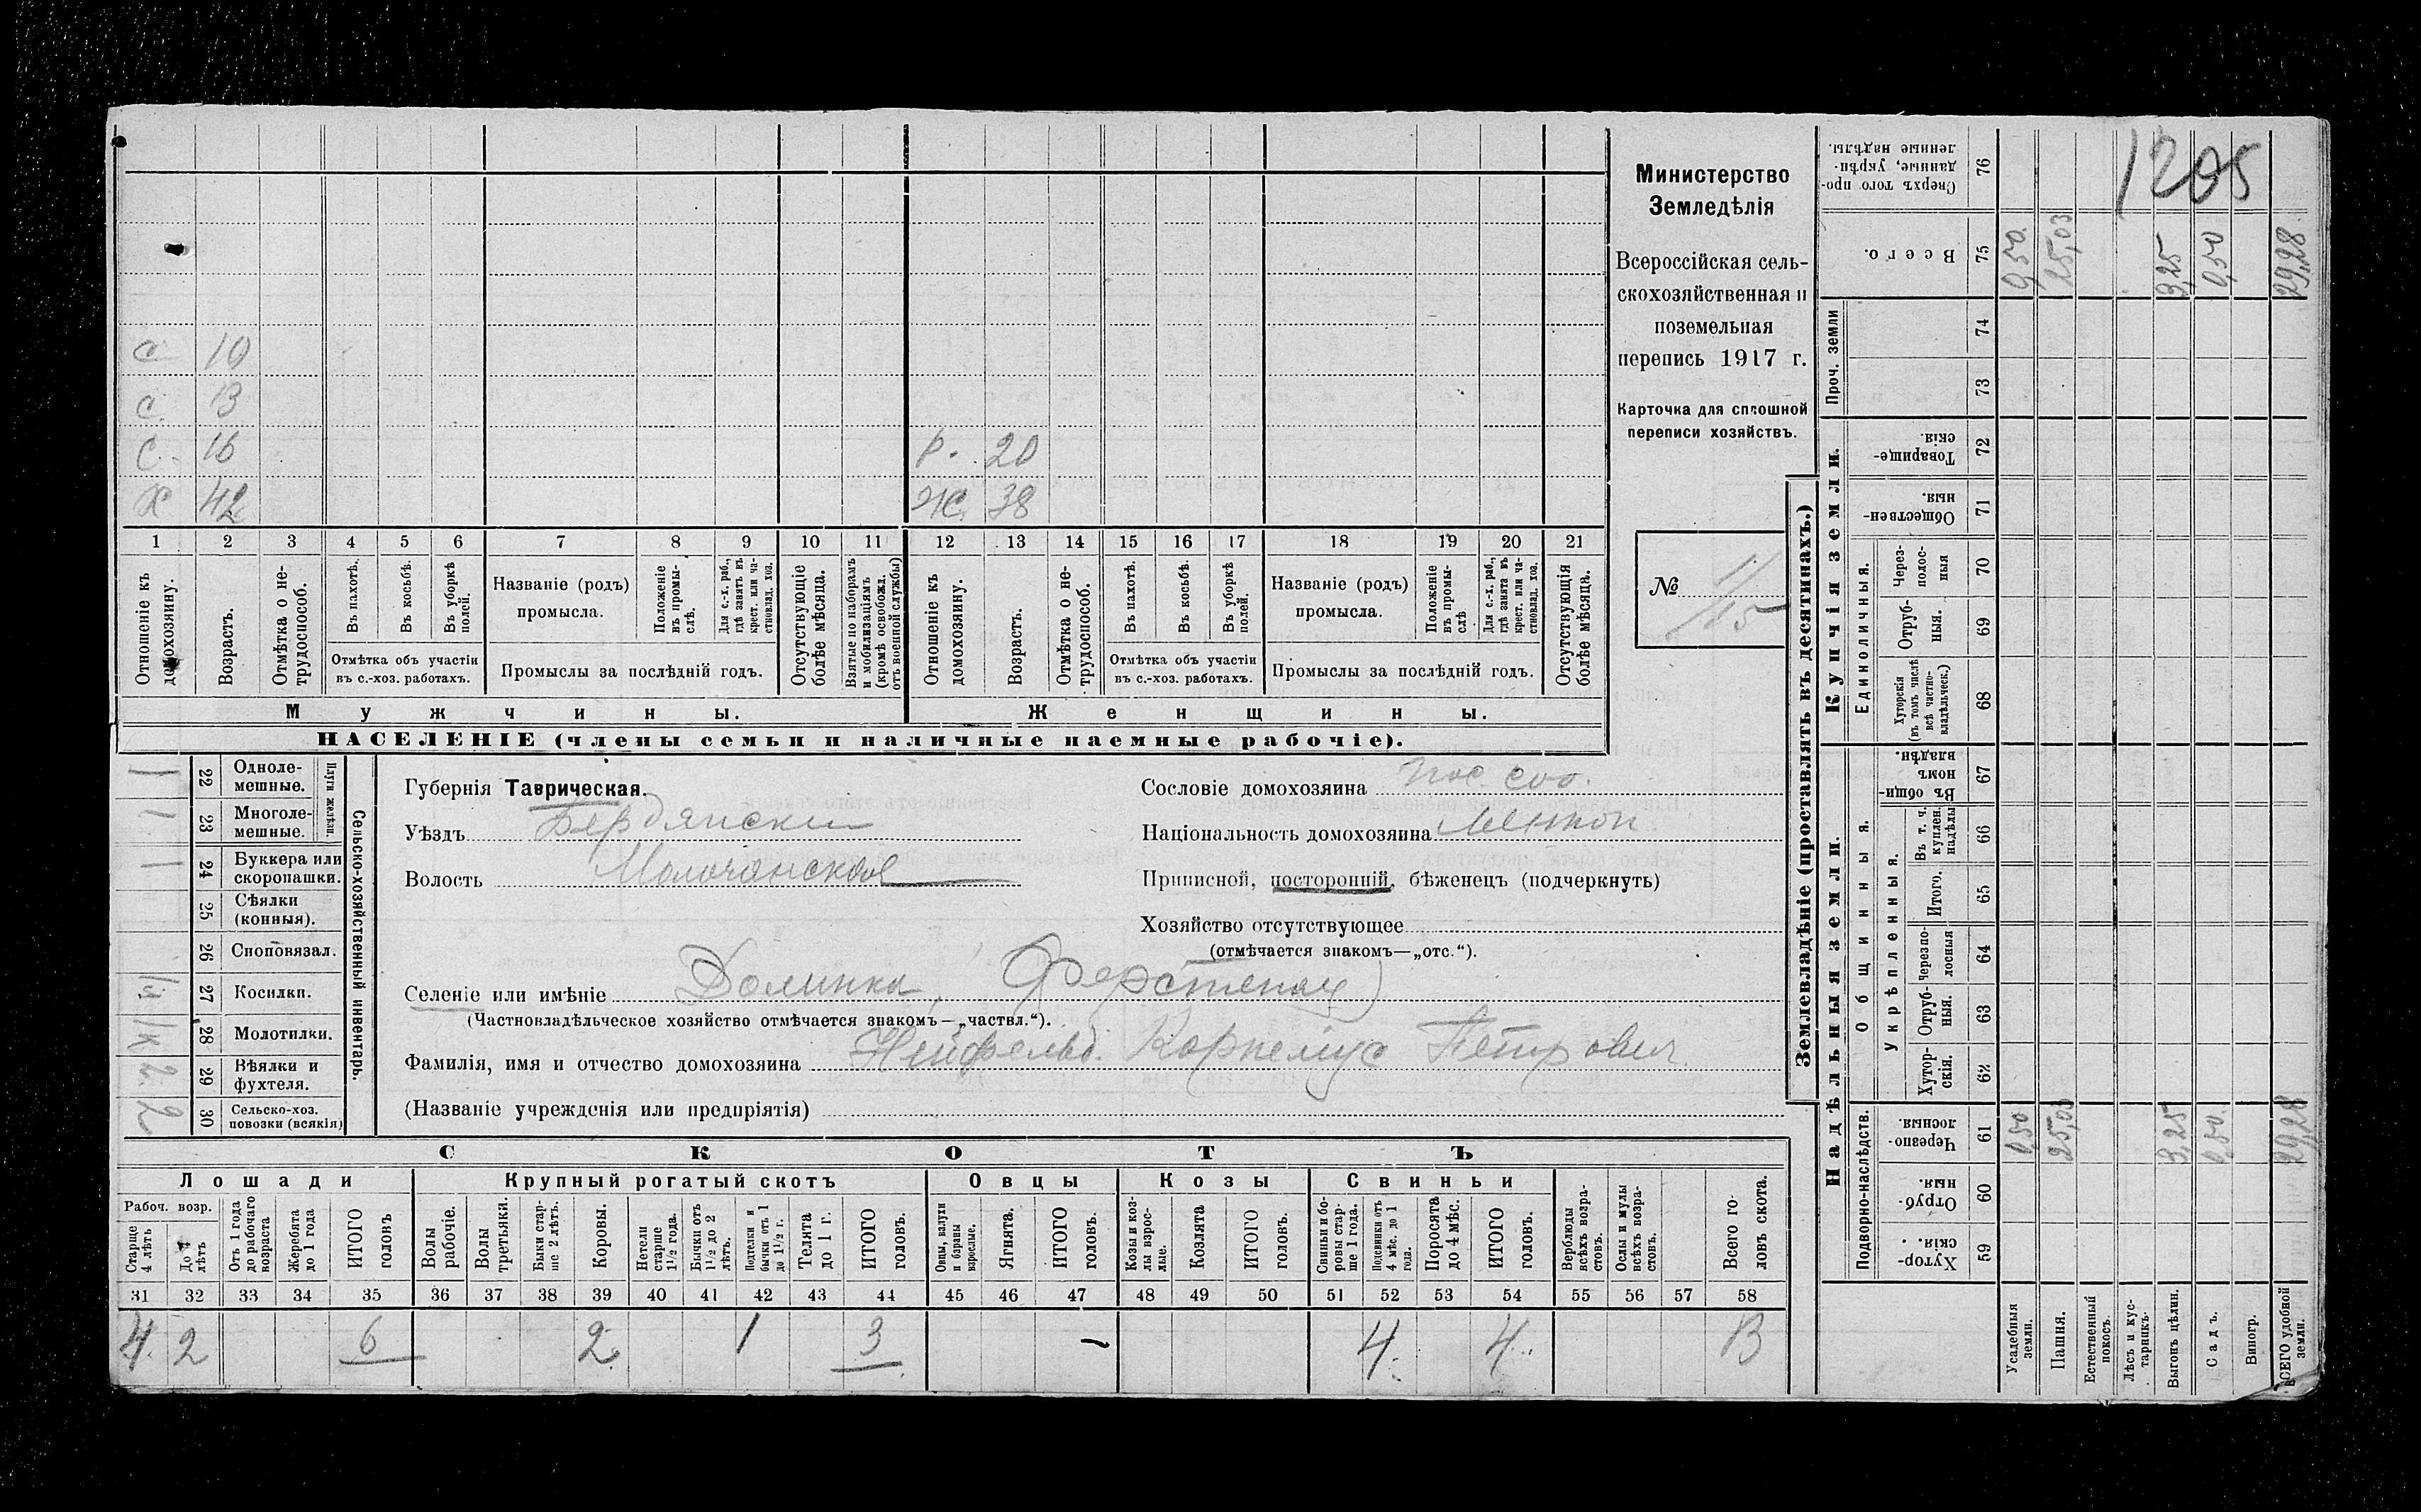 Министерство
Земледѣлія
Всероссійская сель-
скохозяйственная и
поземельная
перепись 1917 г.
Карточка для сплошной
переписи хозяйствъ.
№ 1/15
1205
с 10
с 13
с. 16
х 42
р. 20
ж. 38
1 2 3 4 5 6 7 8 9 10 11 12 13 14 15 16 17 18 19 20 21
Отношеніе къ домохозяину.
Возрастъ.
Отмѣтка о не-трудоспособ.
Въ пахотѣ.
Въ косьбѣ.
Въ уборкѣ полей.
Отмѣтка объ участіи
въ с.-хоз. работахъ.
Названіе (родъ)
промысла.
Положеніе въ промы-слѣ.
Для с.-х. раб., гдѣ занятъ въ крест. или ча-стновлад. хоз.
Промыслы за послѣдній годъ.
Отсутствующіе болѣе мѣсяца.
Взятые по наборамъ и мобилизаціямъ (кромѣ освобожд. отъ военной службы)
Отношеніе къ домохозяину.
Возрастъ.
Отмѣтка о не-трудоспособ.
Въ пахотѣ.
Въ косьбѣ.
Въ уборкѣ полей.
Отмѣтка объ участіи
въ с.-хоз. работахъ.
Названіе (родъ)
промысла.
Положеніе въ промы-слѣ
Для с.-х. раб., гдѣ занята въ крест. или ча-стновлад. хоз.
Промыслы за послѣдній годъ.
Отсутствующія болѣе мѣсяца.
Мужчины.
Женщины.
НАСЕЛЕНІЕ (члены семьи и наличные наемные рабочіе).
Сельско-хозяйственный инвентарь.
Плуги желѣзн.
1 22 Одноле-мешные.
1 23 Многоле-мешные.
1 24 Буккера или скоропашки.
25 Сѣялки (конныя).
26 Сноповязал.
27 Косилки.
28 Молотилки.
2. 29 Вѣялки и фухтеля.
2 30 Сельско-хоз. повозки (всякія)
Губернія Таврическая.
Уѣздъ Бердянскій
Волость Молочанская
Сословіе домохозяина пос. соб.
Національность домохозяина Меннон
Приписной, посторонній, бѣженецъ (подчеркнуть)
Хозяйство отсутствующее
(отмѣчается знакомъ—„отс.“).
Селеніе или имѣніе Долинка, (Ферстенау)
(Частновладѣльческое хозяйство отмѣчается знакомъ—„частвл.“).
Фамилія, имя и отчество домохозяина Нейфельд. Корнелиус Петрович.
(Названіе учрежденія или предпріятія)
СКОТЪ
Лошади
Крупный рогатый скотъ
Овцы
Козы
Свиньи
Рабоч. возр.
Старше 4 лѣтъ
До 4 лѣтъ
Отъ 1 года до рабочаго возраста
Жеребята до 1 года
ИТОГО головъ
Волы рабочіе.
Волы третьяки.
Быки стар-ше 2 лѣтъ.
Коровы.
Нетели старше 1½ года.
Бычки отъ 1½ до 2 лѣтъ.
Подтелки и бычки отъ 1 до 1½ г.
Телята до 1 г.
ИТОГО головъ.
Овцы, валухи и бараны взрослые.
Ягнята.
ИТОГО головъ.
Козы и коз-лы взрос-лые.
Козлята
ИТОГО головъ.
Свиньи и бо-ровы стар-ше 1 года.
Подсвинки отъ 4 мѣс. до 1 года.
Поросята до 4 мѣс.
ИТОГО головъ.
Верблюды всѣхъ возра-стовъ.
Ослы и мулы всѣхъ возра-стовъ.
Всего го-ловъ скота.
31 32 33 34 35 36 37 38 39 40 41 42 43 44 45 46 47 48 49 50 51 52 53 54 55 56 57 58
4. 2 6 2. 1 3 – 4. 4. 13
Землевладѣніе (проставлять въ десятинахъ.)
Надѣльныя земли.
Купчія земли.
Проч. земли
Подворно-наслѣдств.
Общинныя.
Укрѣпленныя.
Единоличныя.
Сверхъ того про-данные, укрѣп-ленные надѣлы. 76
Всего. 75 0,50. 25,03 3,25 0,50 29,28
74
73
Товарище-скія. 72
Обществен-ныя. 71
Через-полос-ныя 70
Отруб-ныя. 69
Хуторскія (въ томъ числѣ всѣ частно-владѣльческ.) 68
Въ общи-номъ владѣн. 67
Въ т. ч. куплен. надѣлы 66
Итого. 65
Черезпо-лосныя 64
Отруб-ныя. 63
Хутор-скія. 62
Черезпо-лосныя. 61 0,50 25,03 3,25 0,50. 29,28
Отруб-ныя. 60
Хутор-скія. 59
Усадебныя земли.
Пашня.
Естественный покосъ.
Лѣсъ и кус-тарникъ.
Выгонъ цѣлин.
Садъ.
Виногр.
ВСЕГО удобной земли.